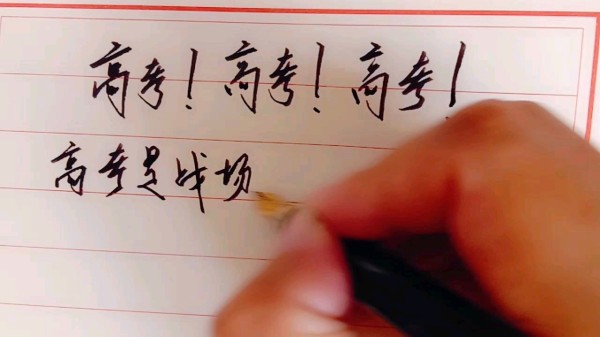 高考！高考！高考！
高考是战场